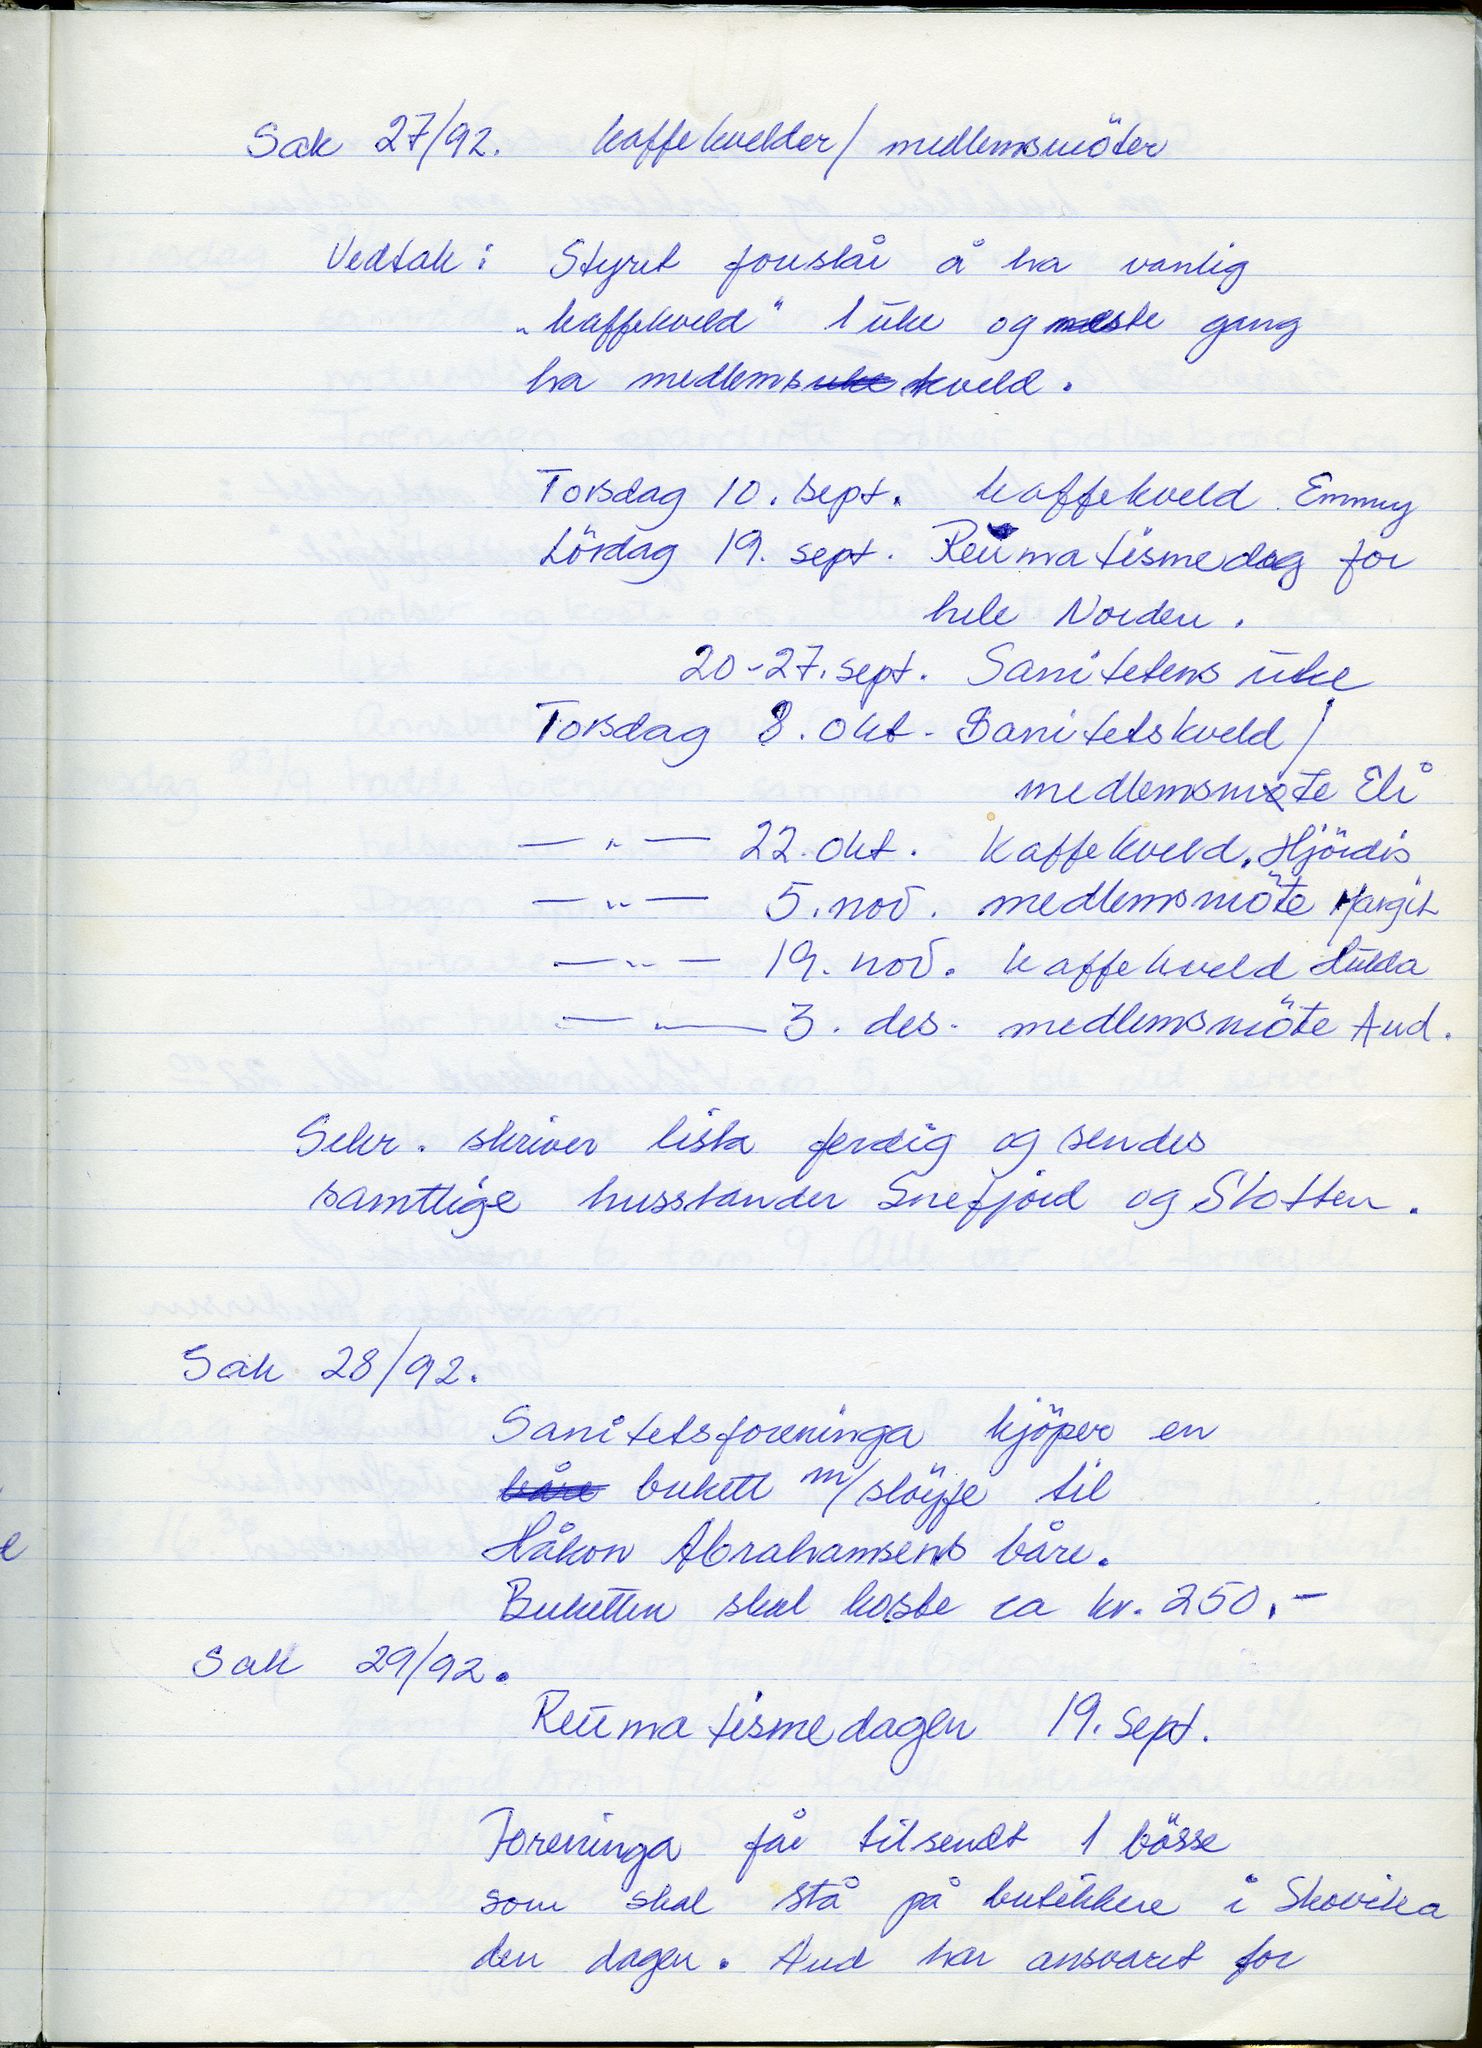 Sak 27/92. kaffekvelder/ medlemsmöter
Vedtak: Styret foreslår å ha vanlig
"kaffekveld" 1 uke og neste gang
ha medlemskveld.
Torsdag 10. sept. kaffekveld Emmy
Lördag 19. sept. Reumatismedag for
hele Norden.
20-27. sept. Sanitetens uke
Torsdag 8. okt. Sanitetskveld/
medlemsmøte Eli
— " — 22. okt. kaffekveld. Hjördis
— " — 5. nov. medlemsmöte Margit
— " — 19. nov. kaffekveld Hulda
— " — 3. des. medlemsmöte Aud.
Sekr. skriver lista ferdig og sendes
samtlige husstander Snefjord og Slotten.
Sak 28/92.
Sanitetsforeninga kjöper en
båre bukett m/slöyfe til
Håkon Abrahamsens båre.
Buketten skal koste ca kr. 250,-
Sak 29/92.
Reumatismedagen 19. sept.
Foreninga får tilsendt 1 bösse
som skal stå på butikken i Skovika
den dagen. Aud har ansvaret for